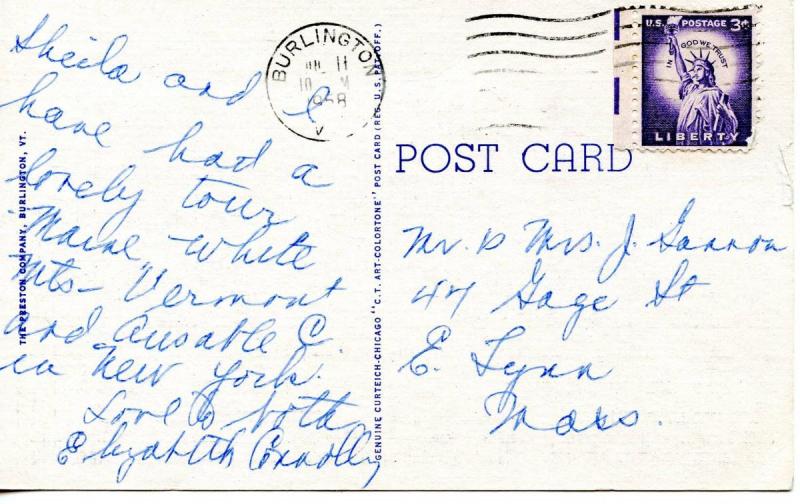 Sheila and I
have had a
lovely tour
Maine, White
Mts - Vermont
and Ausable C.
in New York.
Love to both
Elizabeth Connolly
THE PRESTON COMPANY, BURLINGTON, VT.
BURLINGTON
11
10 M
1958
V
GENUINE CURTEICH-CHICAGO "C.T. ART-COLORTONE" POST CARD (REG. U.S. PAT. OFF.)
U.S. POSTAGE 3¢
IN GOD WE TRUST
LIBERTY
POST CARD
Mr. & Mrs. J. Gannon
47 Gage St
E. Lynn
Mass.